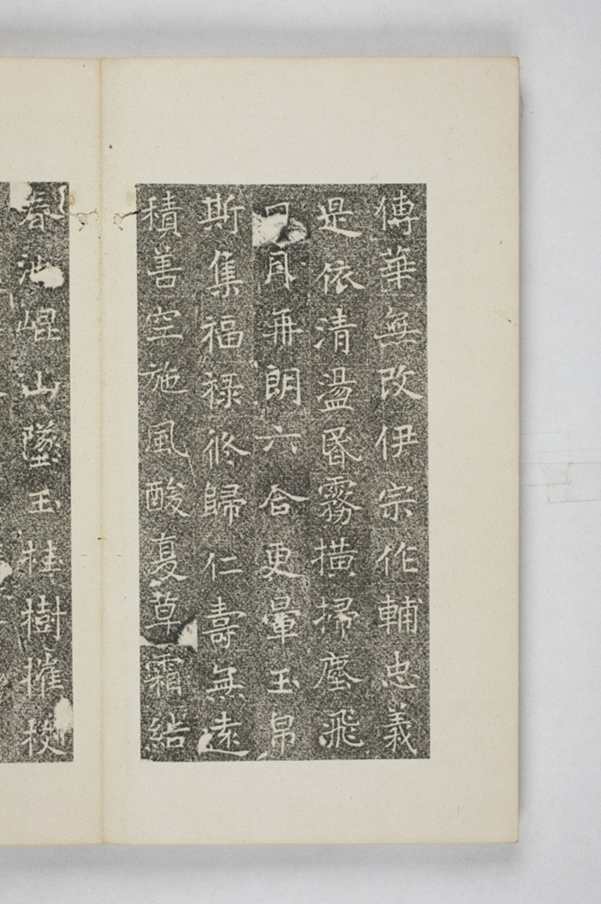 傳華無改伊宗作輔忠義
是依清盪昬霧橫掃塵飛
日月再朗六合更暈玉帛
斯集福祿攸歸仁壽無遠
積善空施風酸夏草霜結
春池崐山墜玉桂樹摧枝